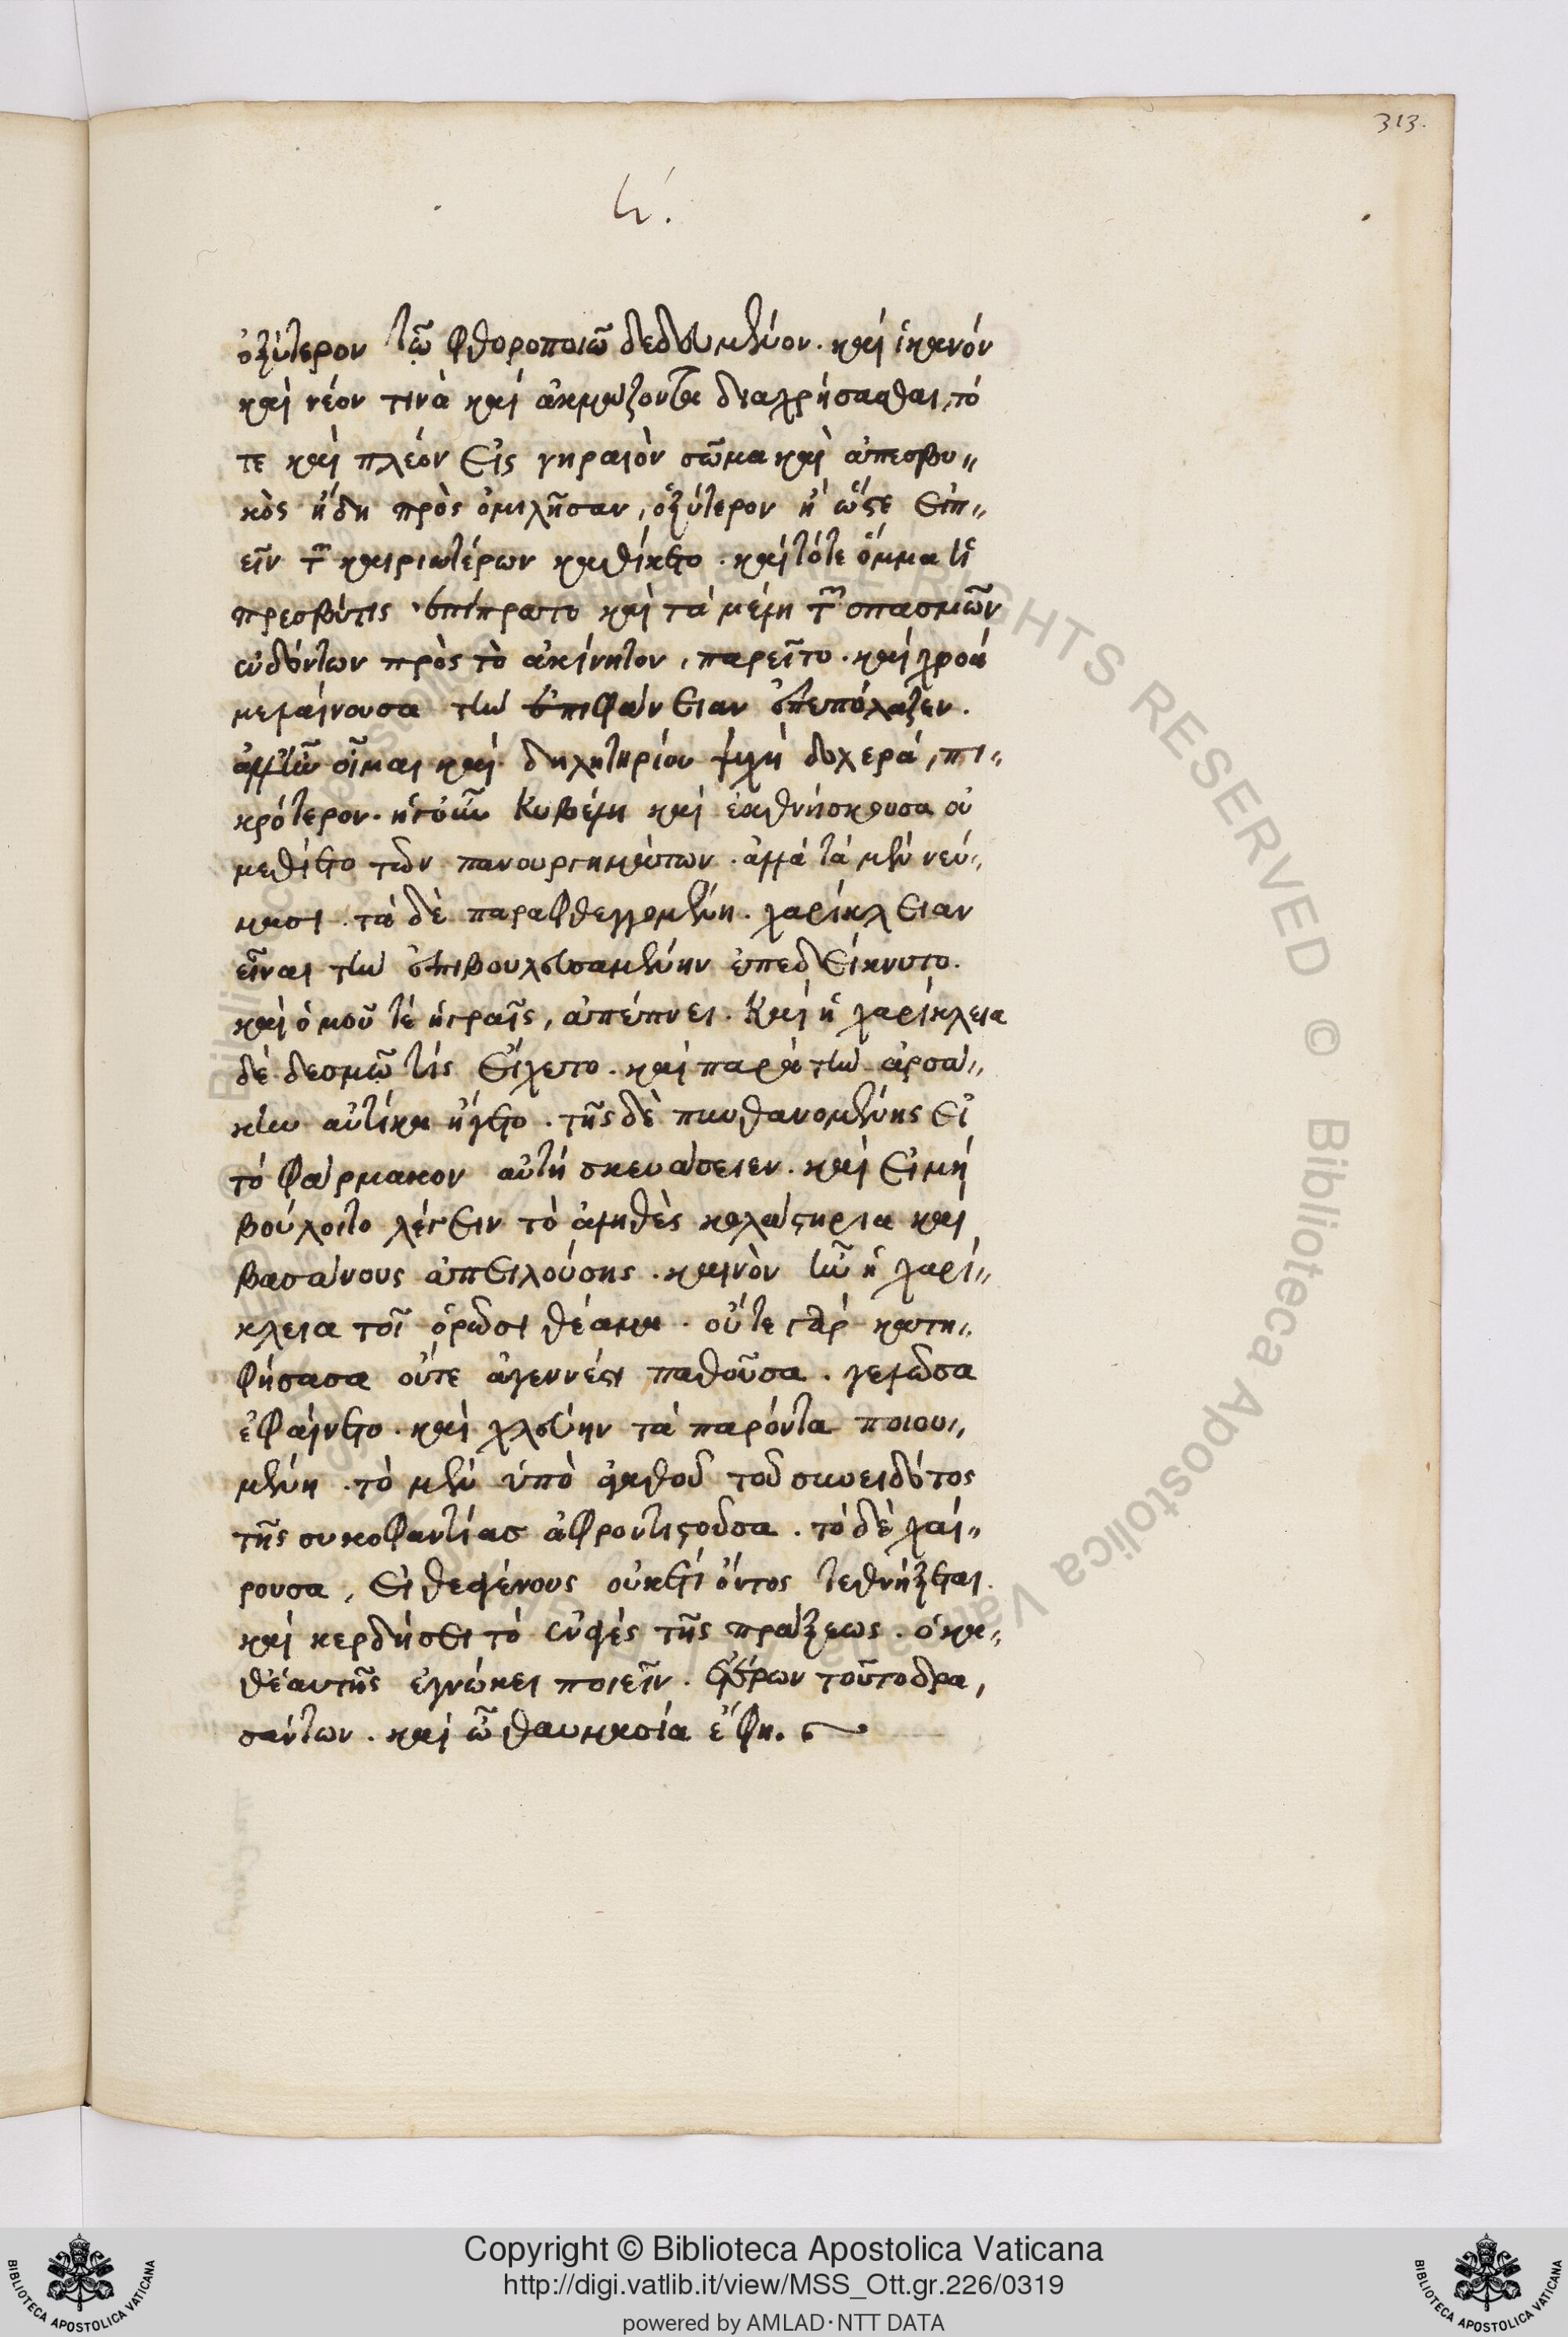 313.
η΄.
ὀξύτερον τῶ φθοροποιῶ δεδευμένον. καὶ ἱκανόν
καὶ νέον τινὰ καὶ ἀκμάζοντα διαχρήσασθαι, τό
τε καὶ πλέον εἰς γηραιὸν σῶμα καὶ ἀπεσβυ-
κὸς ἤδη πρὸς ὁμιλῆσαν, ὀξύτερον ἢ ὥστε εἰπ-
εῖν τῶν καιριωτέρων καθίκετο. καὶ τότε ὄμμα τῇ
πρεσβύτις ἐπίπρατο καὶ τὰ μέλη τῶν σπασμῶν
ἐνδόντων πρὸς τὸ ἀκίνητον, παρεῖτο. καὶ χροά
μελαίνουσα τὴν ἐπιφάνειαν ἐπεπόλαζεν.
ἀλλ' ἦν οἶμαι καὶ δηλητηρίου ψυχὴ δολερά, πι-
κρότερον. ἡ γοῦν Κυβέλη καὶ ἐκθνήσκουσα οὐ
μεθίετο τῶν πανουργημάτων. ἀλλὰ τὰ μὲν νεύ-
μασι. τὰ δὲ παραφθεγγομένη. χαρίκλειαν
εἶναι τὴν ἐπιβουλευσαμένην ὑπεδείκνυτο.
καὶ ὁμοῦ τέ ἡ γραῦς, ἀπέπνει. Καὶ ἡ χαρίκλεια
δὲ δεσμῶτις εἴχετο. καὶ παρὰ τὴν ἀρσά-
κην αὐτίκα ἤγετο. τῆς δὲ πυνθανομένης εἰ
τό φάρμακον αὐτὴ σκευάσειεν. καὶ εἰ μὴ
βούλοιτο λέγειν τὸ ἀληθὲς κολαστήρια καὶ
βασάνους ἀπειλούσης. καινὸν ἦν ἡ χαρί-
κλεια τοῖς ὁρῶσι θέαμα. οὔτε γὰρ κατη-
φήσασα οὔτε ἀγεννές τι παθοῦσα. γελῶσα
ἐφαίνετο. καὶ χλεύην τὰ παρόντα ποιου-
μένη. τὸ μὲν ὑπὸ ἀγαθοῦ τοῦ συνειδότος
τῆς συκοφαντίας ἀφροντιστοῦσα. τὸ δὲ χαί-
ρουσα, εἰ θεαγένους οὐκέτι ὄντος τεθνήξεται.
καὶ κερδήσει τὸ εὐαγὲς τῆς πράξεως. ὃ κα-
θ' ἑαυτῆς ἐγνώκει ποιεῖν. ἑτέρων τοῦτο δρα-
σάντων. καὶ ὦ θαυμασία ἔφη.
Copyright © Biblioteca Apostolica Vaticana
http://digi.vatlib.it/view/MSS_Ott.gr.226/0319
powered by AMLAD·NTT DATA